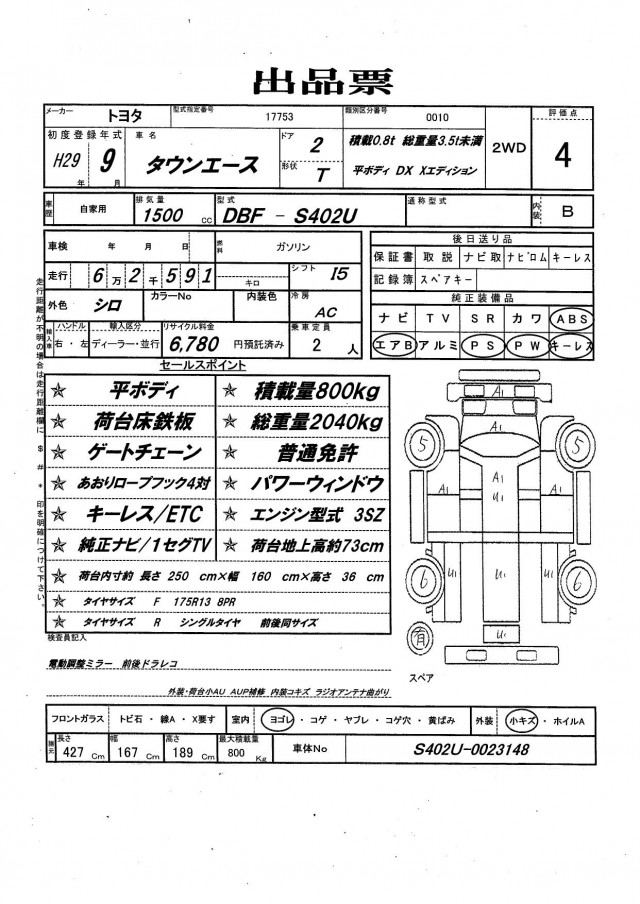 出品票
メーカー トヨタ 型式指定番号 17753 類別区分番号 0010 評価点
初度登録年式 車名 ドア 2 積載0.8t 総重量3.5t未満 2WD 4
H29年 9月 タウンエース 形状 T 平ボディ DX Xエディション
車歴 自家用 排気量 1500 cc 型式 DBF - S402U 通称型式 内装 B
車検 年 月 日 燃料 ガソリン 後日送り品
保証書 取説 ナビ取 ナビロム キーレス
走行 6万2千591 キロ シフト I5 記録簿 スペアキー
外色 シロ カラーNo 内装色 冷房 AC 純正装備品
ナビ TV SR カワ ABS
輸入車 ハンドル 右・左 輸入区分 ディーラー・並行 リサイクル料金 6,780 円預託済み 乗車定員 2 人 エアB アルミ PS PW キーレス
セールスポイント
☆ 平ボディ ☆ 積載量800kg
☆ 荷台床鉄板 ☆ 総重量2040kg
☆ ゲートチェーン ☆ 普通免許
☆ あおりロープフック4対 ☆ パワーウィンドウ
☆ キーレス/ETC ☆ エンジン型式 3SZ
☆ 純正ナビ/1セグTV ☆ 荷台地上高約73cm
☆ 荷台内寸約 長さ 250 cm×幅 160 cm×高さ 36 cm
☆ タイヤサイズ F 175R13 8PR
☆ タイヤサイズ R シングルタイヤ 前後同サイズ
走行距離が不明の場合は走行距離欄に $ # * 印を明確につけて下さい。
A1
A1
5 5
A1 A1 A1
U1
6 U1 U1 U1 6
有 U1
スペア
検査員記入
電動調整ミラー 前後ドラレコ
外装・荷台小AU AUP補修 内装コキズ ラジオアンテナ曲がり
フロントガラス トビ石・線A・X要す 室内 ヨゴレ・コゲ・ヤブレ・コゲ穴・黄ばみ 外装 小キズ・ホイルA
諸元 長さ 427 Cm 幅 167 Cm 高さ 189 Cm 最大積載量 800 Kg 車体No S402U-0023148